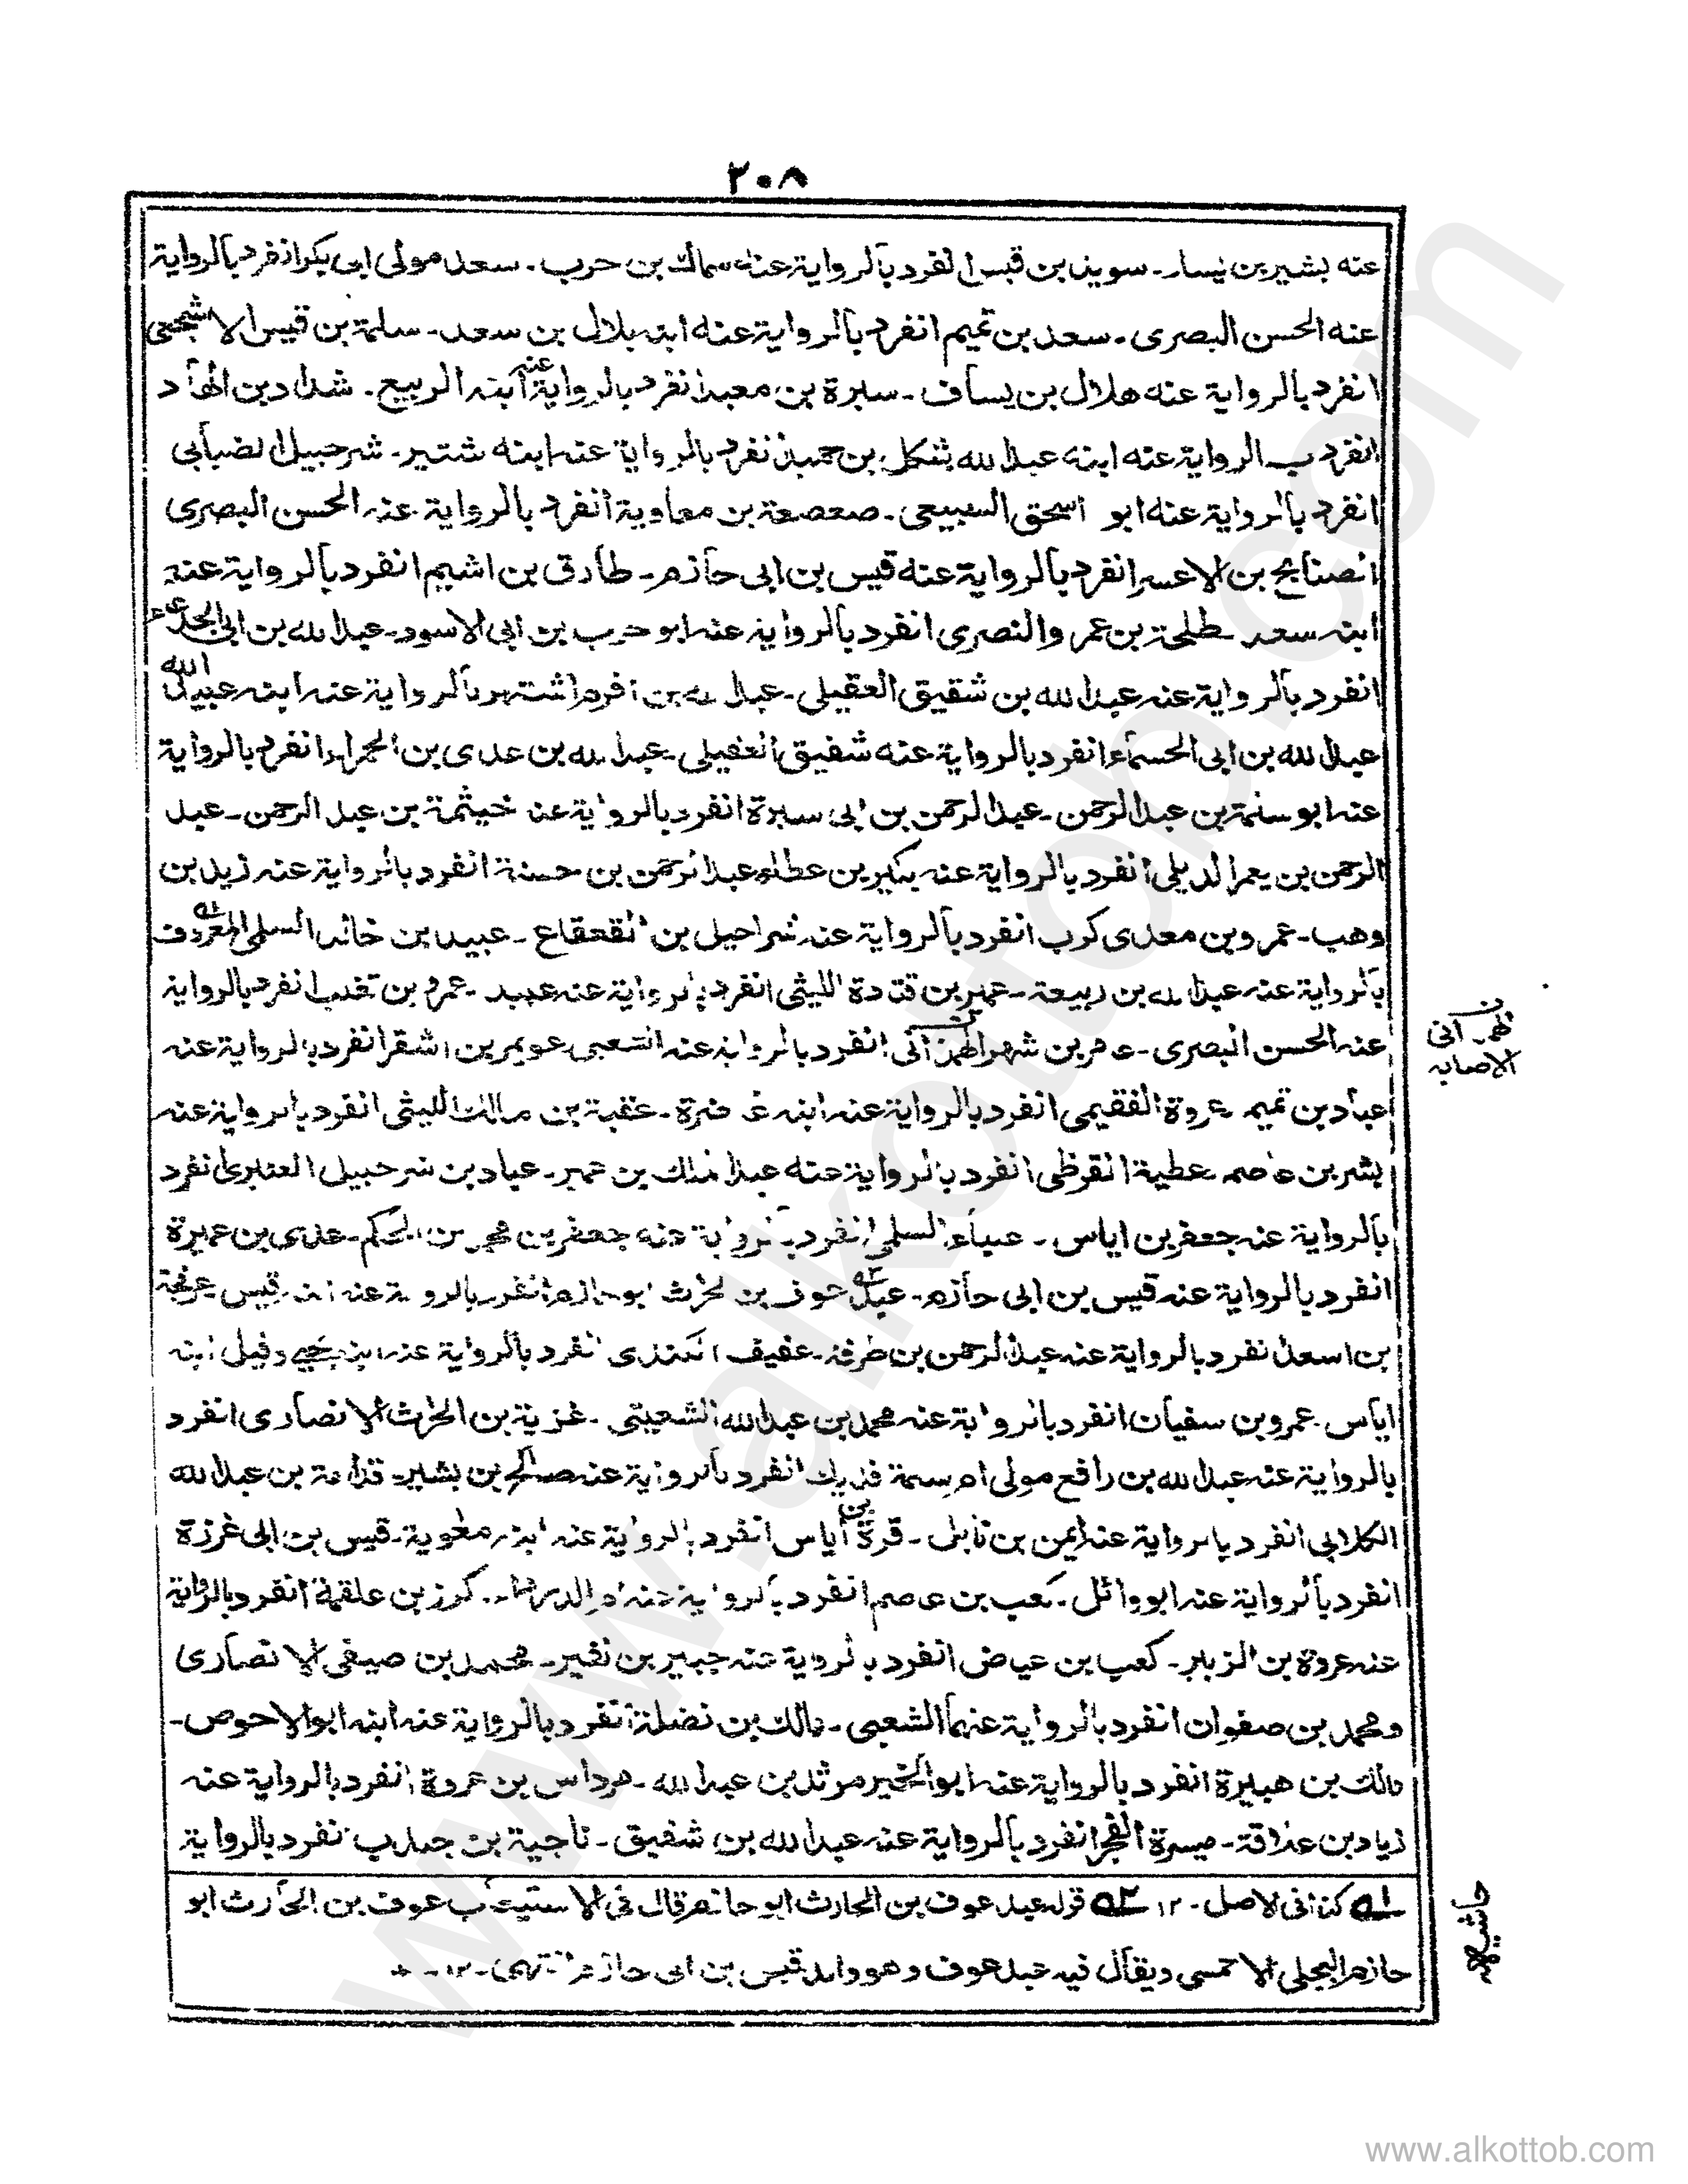 ٢٠٨
عنه بشير بن يسار ـ سويد بن قيس انفرد بالرواية عنه سماك بن حرب ـ سعد مولى ابى بكر انفرد بالرواية
عنه الحسن البصرى ـ سعد بن تميم انفرد بالرواية عنه ابنه بلال بن سعد ـ سلمة بن قيس الاشجعى
انفرد بالرواية عنه هلال بن يساف ـ سبرة بن معبد انفرد بالرواية عنه ابنه الربيع ـ شداد بن الهاد
انفرد ب الرواية عنه ابنه عبد الله شكل بن حميد انفرد بالرواية عنه ابنه شتير ـ شرحبيل الضبابى
انفرد بالرواية عنه ابو اسحق السبيعى ـ صعصعة بن معاوية انفرد بالرواية عنه الحسن البصرى
الصنابح بن الاعسر انفرد بالرواية عنه قيس بن ابى حازم ـ طارق بن اشيم انفرد بالرواية عنه
ابنه سعد ـ طلحة بن عمر والنصرى انفرد بالرواية عنه ابو حرب بن ابى الاسود ـ عبد الله بن ابى الجدعاء
انفرد بالرواية عنه عبد الله بن شقيق العقيلى ـ عبد الله بن اقرم اشتهر بالرواية عنه ابنه عبيد الله
عبد الله بن ابى الحسماء انفرد بالرواية عنه شقيق العقيلى ـ عبد الله بن عدى بن الحمراء انفرد بالرواية
عنه ابو سلمة بن عبد الرحمن ـ عبد الرحمن بن ابى سبرة انفرد بالرواية عنه خيثمة بن عبد الرحمن ـ عبد
الرحمن بن يعمر الديلى انفرد بالرواية عنه بكير بن عطاء عبد الرحمن بن حسنة انفرد بالرواية عنه زيد بن
وهب ـ عمرو بن معدى كرب انفرد بالرواية عنه شراحيل بن القعقاع ـ عبيد بن خالد السلمى المعروف
بالرواية عنه عبد الله بن ربيعة ـ عمير بن قتادة الليثى انفرد بالرواية عنه عبيد ـ عمرو بن تغلب انفرد بالرواية
عنه الحسن البصرى ـ عامر بن شهر الهمدانى انفرد بالرواية عنه الشعبى عويمر بن اشقر انفرد بالرواية عنه
عباد بن تميم عروة الفقيمى انفرد بالرواية عنه ابنه غاضرة ـ عقبة بن مالك الليثى انفرد بالرواية عنه
بشر بن عاصم عطية القرظى انفرد بالرواية عنه عبد الملك بن عمير ـ عباد بن شرحبيل العنبرى انفرد
بالرواية عنه جعفر بن اياس ـ السلمى انفرد بالرواية عنه جعفر بن الحكم ـ عدى بن عميرة
انفرد بالرواية عنه قيس بن ابى حازم ـ عبد عوف بن الحارث ابو حازم انفرد بالرواية عنه ابنه قيس عرفجة
بن اسعد انفرد بالرواية عنه عبد الرحمن بن طرفة ـ عفيف الكندى انفرد بالرواية عنه ابنه يحيى وقيل ابنه
اياس ـ عمرو بن سفيان انفرد بالرواية عنه محمد بن عبد الله الشعيثى ـ غزية بن الحارث الانصارى انفرد
بالرواية عنه عبد الله بن رافع مولى ام سلمة فديك انفرد بالرواية عنه صالح بن بشير ـ قدامة بن عبد الله
الكلابى انفرد بالرواية عنه ايمن بن نابل ـ قرة بن اياس انفرد بالرواية عنه ابنه معاوية ـ قيس بن ابى غرزة
انفرد بالرواية عنه ابو وائل ـ كعب بن عاصم انفرد بالرواية عنه ام الدرداء ـ كرز بن علقمة انفرد بالرواية
عنه عروة بن الزبير ـ كعب بن عياض انفرد بالرواية عنه جبير بن نفير ـ محمد بن صيفى الانصارى
ومحمد بن صفوان انفرد بالرواية عنهما الشعبى ـ مالك بن نضلة انفرد بالرواية عنه ابنه ابو الاحوص ـ
مالك بن هبيرة انفرد بالرواية عنه ابو الخير مرثد بن عبد الله ـ مرداس بن عروة انفرد بالرواية عنه
زياد بن علاقة ـ ميسرة الفجر انفرد بالرواية عنه عبد الله بن شقيق ـ ناجية بن جندب انفرد بالرواية
ن الهمدانى
الاصابه
حاشيه
له كذا فى الاصل ـ ١٢ ٢ه قوله عبد عوف بن الحارث ابو حازم قال فى الاستيعاب عوف بن الحارث ابو
حازم البجلى الاحمسى ويقال فيه عبد عوف وهو والد قيس بن ابى حازم انتهى ـ ١٢ ـ
www.alkottob.com
www.alkottob.com